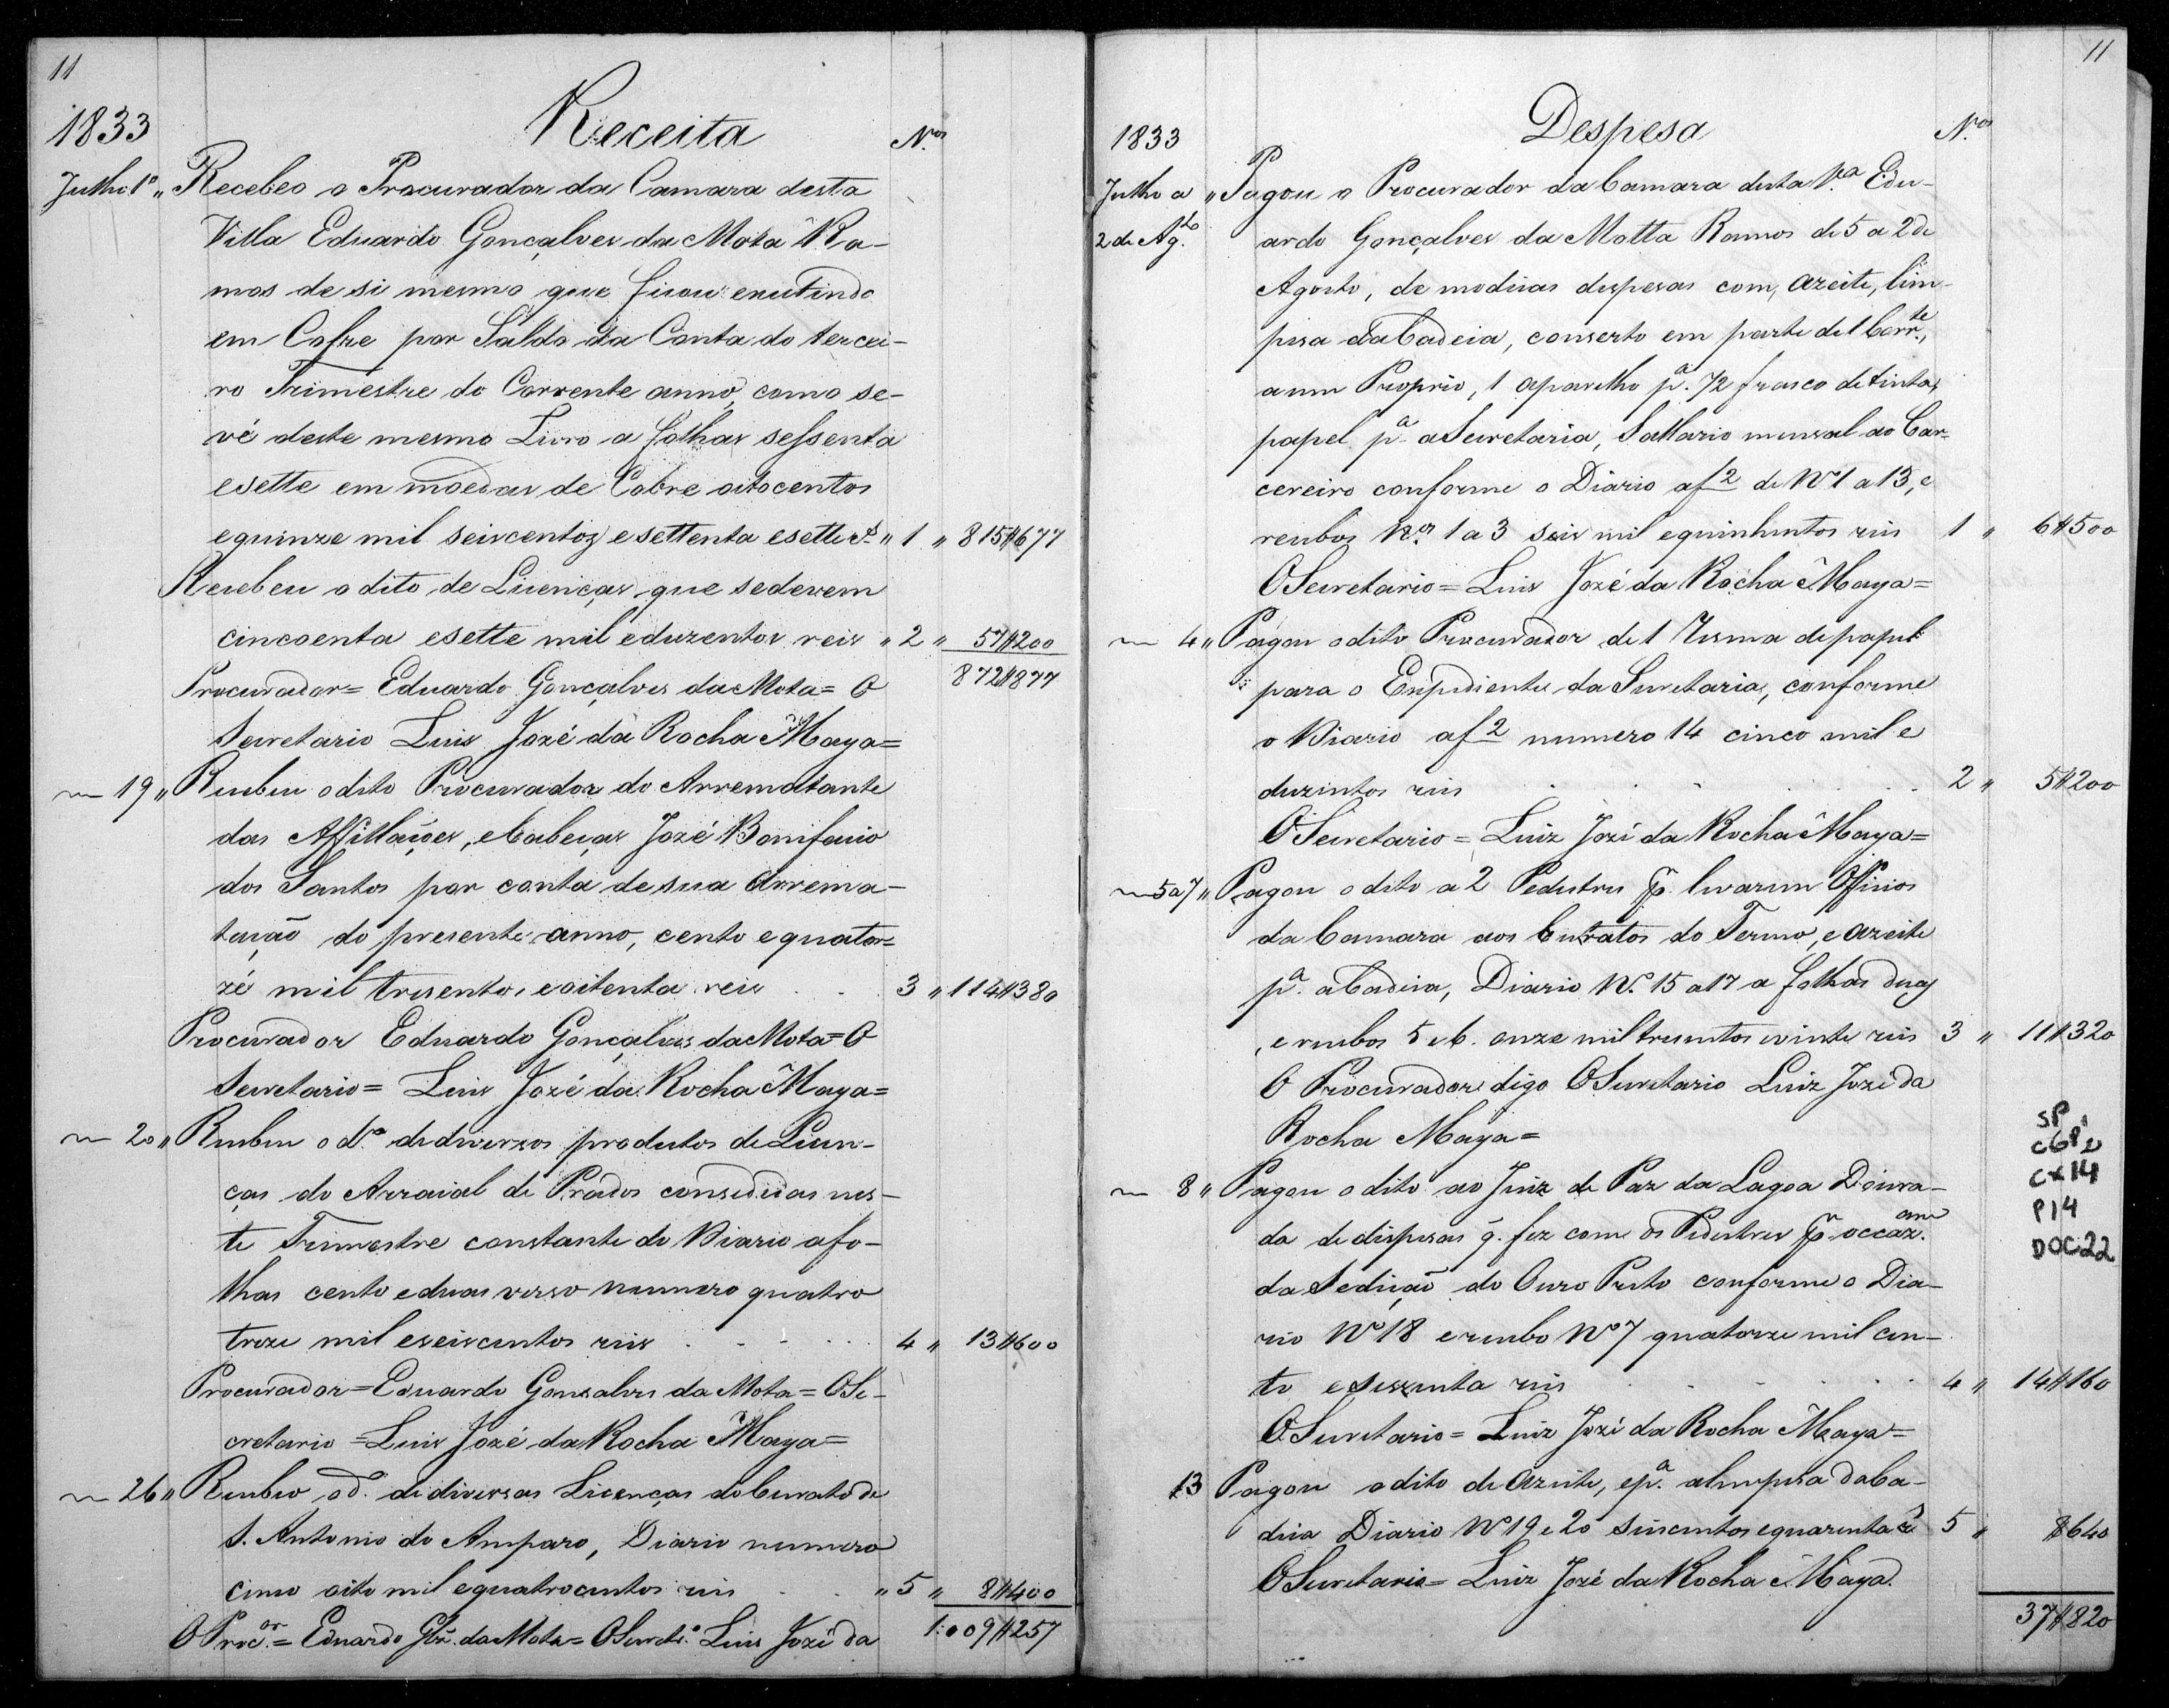 11
1833
Receita
N.os
Julho 1º " Recebeo o Procurador da Camara desta
Villa Eduardo Gonçalves da Mota Ra-
mos de si mesmo que ficou existindo
em Cofre por Saldo da Conta do tercei-
ro Trimestre do Corrente anno, como se-
vê deste mesmo Livro a folhas sessenta
esette em moedas de Cobre oitocentos
equinze mil seiscentos esettenta esette rs " 1 " 815#677
Recebeu o dito de Licenças que sederem
cincoenta esette mil eduzentos reis " 2 " 57#200
872#877
Procurador = Eduardo Gonçalves da Mota = O
Secretario Luis Jozé da Rocha Maya =
19 " Recebeu odito Procurador do Arrematante
das Affillações, eCabeças Jozé Bonifacio
dos Santos por conta de sua arrema-
tação do presente anno, cento equator=
ze mil tresentos eoitenta reis 3 " 114#380
Procurador Eduardo Gonçalves da Mota = O
Secretario = Luis Jozé da Rocha Maya =
20 " Recebeu o d.º de diversos produtos de Licen-
ças do Arraial de Prados consedidas nes-
te Trimestre constante do Diario afo-
lhas cento eduas verso numero quatro
treze mil eseiscentos reis 4 " 13#600
Procurador = Eduardo Gonsalves da Mota = OSe-
cretario = Luis Jozé da Rocha Maya =
26 " Recebeo o d. de diversas Licenças do Curato de
S. Antonio do Amparo, Diario numero
cinco oito mil equatrocentos reis " 5 " 8#400
O Proc.or = Eduardo Glz. da Mota = OSecret.º Luis Jozé da 1:009#257
11
1833
Despesa
N.os
Julho a " Pagou o Procurador da Camara desta V.a Edu-
2 de Ag.to ardo Gonçalves da Motta Ramos de 5 a 2 de
Agosto, de modicas despesas com, azeite, lim-
pesa da Cadeia, conserto em parte de 1 Corr.te,
aum Proprio, 1 aparelho p.a 1/2 frasco de tinta,
papel p.a a Secretaria, Sallario mensal ao Car-
cereiro conforme o Diario af 2 de Nº 1 a 13, e
recibos N.os 1 a 3 seis mil equinhentos reis 1 " 6#500
OSecretario = Luis Jozé da Rocha Maya =
4 " Pagou odito Procurador de 1 Resma de papel
para o Expediente da Secretaria, conforme
o Diario af 2 numero 14 cinco mil e
duzentos reis 2 " 5#200
O Secretario = Luiz Jozé da Rocha Maya =
5 a 7 " Pagou odito a 2 Pedestres p. levarem Officios
da Camara aos Curatos do Termo, e azeite
p.a a Cadeia, Diario N. 15 a 17 a folhas duas
, e recibos 5 e 6. onze mil tresentos evinte reis 3 " 11#320
O Procurador digo OSecretario Luiz Jozé da
Rocha Maya =
8 " Pagou odito ao Juiz de Paz da Lagoa Doura-
da de dispesas q. fez com os Pedestres p. occaz.am
da Sedição do Ouro Preto conforme o Dia-
rio Nº 18 e recibo Nº 7 quatorze mil cen-
to esessenta reis 4 " 14#160
OSecretario = Luiz Jozé da Rocha Maya =
13 Pagou odito de Azeite, e p.a alimpesa da Ca-
deia Diario Nº 19 e 20 seiscentos equarenta rs 5 " #640
OSecretario = Luiz Jozé da Rocha Maya.
37#820
SP
CGP2
CX14
P14
DOC.22